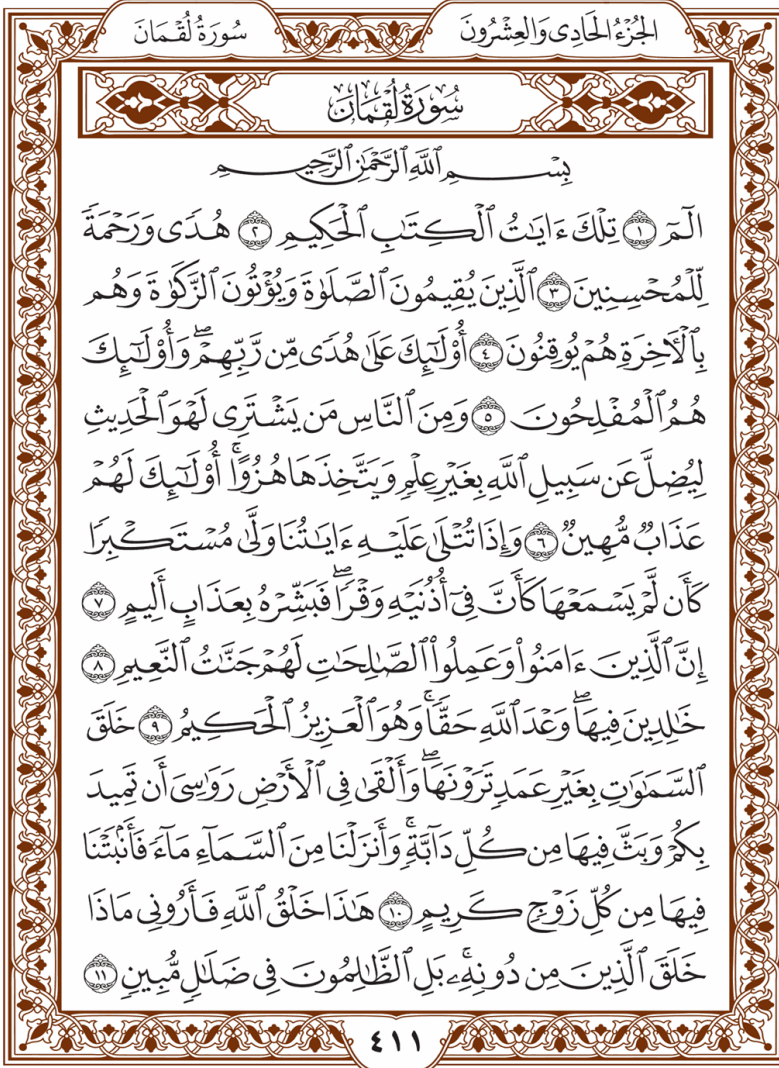 الجُزْءُ الحَادِي وَالعِشْرُونَ
سُورَةُ لُقْمَانَ
سُورَةُ لُقْمَانَ
بِسْمِ ٱللَّهِ ٱلرَّحْمَٰنِ ٱلرَّحِيمِ
الٓمٓ ١ تِلْكَ ءَايَٰتُ ٱلْكِتَٰبِ ٱلْحَكِيمِ ٢ هُدًى وَرَحْمَةً
لِّلْمُحْسِنِينَ ٣ ٱلَّذِينَ يُقِيمُونَ ٱلصَّلَوٰةَ وَيُؤْتُونَ ٱلزَّكَوٰةَ وَهُم
بِٱلْأَخِرَةِ هُمْ يُوقِنُونَ ٤ أُوْلَٰٓئِكَ عَلَىٰ هُدًى مِّن رَّبِّهِمْۖ وَأُوْلَٰٓئِكَ
هُمُ ٱلْمُفْلِحُونَ ٥ وَمِنَ ٱلنَّاسِ مَن يَشْتَرِى لَهْوَ ٱلْحَدِيثِ
لِيُضِلَّ عَن سَبِيلِ ٱللَّهِ بِغَيْرِ عِلْمٍ وَيَتَّخِذَهَا هُزُوًاۚ أُوْلَٰٓئِكَ لَهُمْ
عَذَابٌ مُّهِينٌ ٦ وَإِذَا تُتْلَىٰ عَلَيْهِ ءَايَٰتُنَا وَلَّىٰ مُسْتَكْبِرًا
كَأَن لَّمْ يَسْمَعْهَا كَأَنَّ فِىٓ أُذُنَيْهِ وَقْرًاۖ فَبَشِّرْهُ بِعَذَابٍ أَلِيمٍ ٧
إِنَّ ٱلَّذِينَ ءَامَنُوا۟ وَعَمِلُوا۟ ٱلصَّٰلِحَٰتِ لَهُمْ جَنَّٰتُ ٱلنَّعِيمِ ٨
خَٰلِدِينَ فِيهَاۖ وَعْدَ ٱللَّهِ حَقًّاۚ وَهُوَ ٱلْعَزِيزُ ٱلْحَكِيمُ ٩ خَلَقَ
ٱلسَّمَٰوَٰتِ بِغَيْرِ عَمَدٍ تَرَوْنَهَاۖ وَأَلْقَىٰ فِى ٱلْأَرْضِ رَوَٰسِىَ أَن تَمِيدَ
بِكُمْ وَبَثَّ فِيهَا مِن كُلِّ دَآبَّةٍۚ وَأَنزَلْنَا مِنَ ٱلسَّمَآءِ مَآءً فَأَنۢبَتْنَا
فِيهَا مِن كُلِّ زَوْجٍ كَرِيمٍ ١٠ هَٰذَا خَلْقُ ٱللَّهِ فَأَرُونِى مَاذَا
خَلَقَ ٱلَّذِينَ مِن دُونِهِۦۚ بَلِ ٱلظَّٰلِمُونَ فِى ضَلَٰلٍ مُّبِينٍ ١١
٤١١